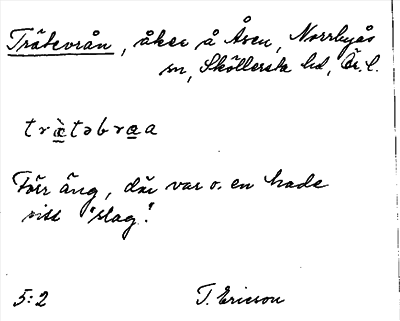 Trätevrån, åker å Åsen, Norrbyås
sn, Sköllersta hd, Ör. l.
træ̀təbræa
Förr äng, där var o. en hade
sitt "slag".
5:2 T. Ericson